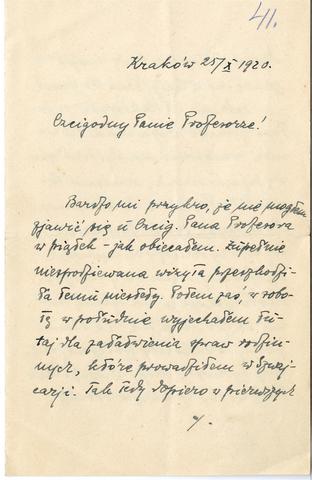 41.
Kraków 25/X 1920.
Czcigodny Panie Profesorze!
Bardzo mi przykro, że nie mogłem
zjawić się u Czcig. Pana Profesora
w piątek - jak obiecałem. Zupełnie
niespodziewana wizyta przeszkodzi-
ła temu niestety. Potem zaś, w sobo-
tę w południe wyjechałem tu-
taj dla załatwienia spraw rodzin-
nych, które prowadziłem w Szwaj-
carji. Tak tedy dopiero w pierwszych